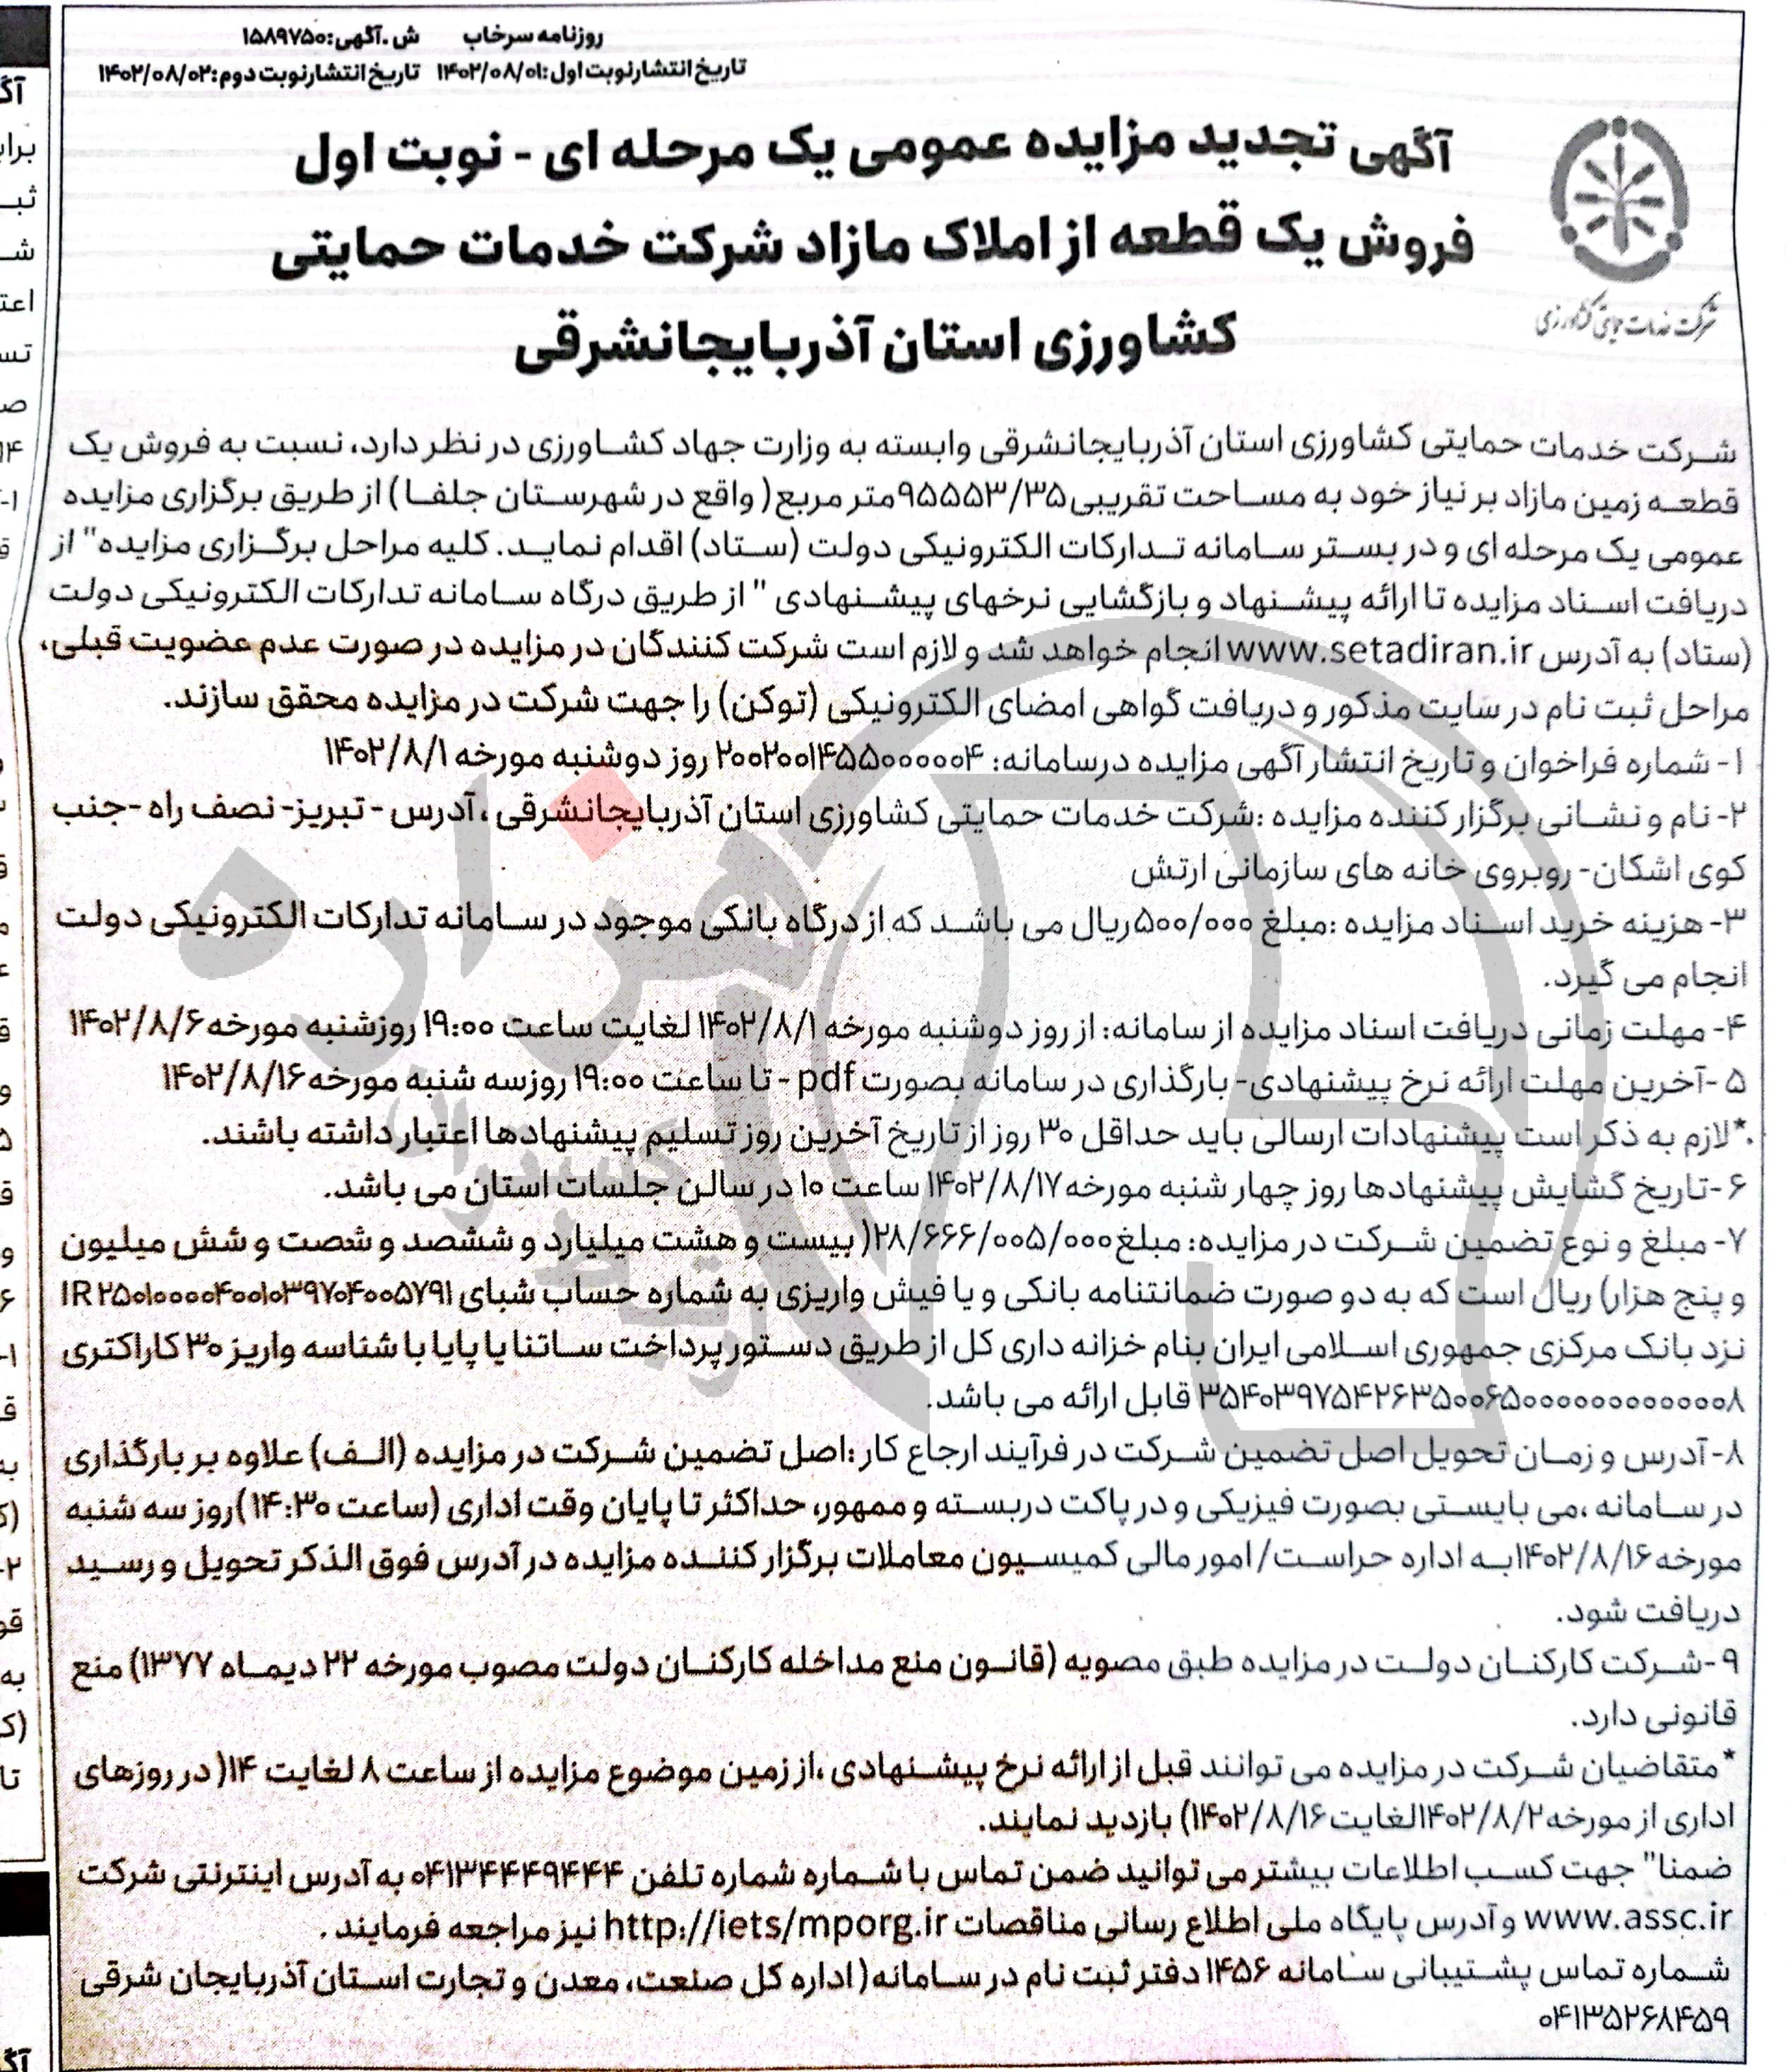 روزنامه سرخاب ش.آگهی:۱۵۸۹۷۵۰
تاریخ انتشار نوبت اول:۱۴۰۲/۰۸/۰۱ تاریخ انتشار نوبت دوم:۱۴۰۲/۰۸/۰۲
آگهی تجدید مزایده عمومی یک مرحله ای - نوبت اول
فروش یک قطعه از املاک مازاد شرکت خدمات حمایتی
کشاورزی استان آذربایجانشرقی
شرکت خدمات حمایتی کشاورزی
شرکت خدمات حمایتی کشاورزی استان آذربایجانشرقی وابسته به وزارت جهاد کشاورزی در نظر دارد، نسبت به فروش یک
قطعه زمین مازاد بر نیاز خود به مساحت تقریبی ۹۵۵۵۳/۳۵ متر مربع( واقع در شهرستان جلفا) از طریق برگزاری مزایده
عمومی یک مرحله ای و در بستر سامانه تدارکات الکترونیکی دولت (ستاد) اقدام نماید. کلیه مراحل برگزاری مزایده" از
دریافت اسناد مزایده تا ارائه پیشنهاد و بازگشایی نرخهای پیشنهادی " از طریق درگاه سامانه تدارکات الکترونیکی دولت
(ستاد) به آدرس www.setadiran.ir انجام خواهد شد و لازم است شرکت کنندگان در مزایده در صورت عدم عضویت قبلی،
مراحل ثبت نام در سایت مذکور و دریافت گواهی امضای الکترونیکی (توکن) را جهت شرکت در مزایده محقق سازند.
۱- شماره فراخوان و تاریخ انتشار آگهی مزایده درسامانه: ۲۰۰۲۰۰۱۴۵۵۰۰۰۰۰۴ روز دوشنبه مورخه ۱۴۰۲/۸/۱
۲- نام و نشانی برگزار کننده مزایده :شرکت خدمات حمایتی کشاورزی استان آذربایجانشرقی ،آدرس - تبریز- نصف راه -جنب
کوی اشکان- روبروی خانه های سازمانی ارتش
۳- هزینه خرید اسناد مزایده :مبلغ ۵۰۰/۰۰۰ریال می باشد که از درگاه بانکی موجود در سامانه تدارکات الکترونیکی دولت
انجام می گیرد.
۴- مهلت زمانی دریافت اسناد مزایده از سامانه: از روز دوشنبه مورخه ۱۴۰۲/۸/۱ لغایت ساعت ۱۹:۰۰ روزشنبه مورخه۱۴۰۲/۸/۶
۵ -آخرین مهلت ارائه نرخ پیشنهادی- بارگذاری در سامانه بصورت pdf - تا ساعت ۱۹:۰۰ روزسه شنبه مورخه ۱۴۰۲/۸/۱۶
.*لازم به ذکر است پیشنهادات ارسالی باید حداقل ۳۰ روز از تاریخ آخرین روز تسلیم پیشنهادها اعتبار داشته باشند.
۶ -تاریخ گشایش پیشنهادها روز چهار شنبه مورخه ۱۴۰۲/۸/۱۷ ساعت ۱۰ در سالن جلسات استان می باشد.
۷- مبلغ و نوع تضمین شرکت در مزایده: مبلغ۲۸/۶۶۶/۰۰۵/۰۰۰( بیست و هشت میلیارد و ششصد و شصت و شش میلیون
و پنج هزار) ریال است که به دو صورت ضمانتنامه بانکی و یا فیش واریزی به شماره حساب شبای IR۲۵۰۱۰۰۰۰۴۰۰۱۰۳۹۷۰۴۰۰۵۷۹۱
نزد بانک مرکزی جمهوری اسلامی ایران بنام خزانه داری کل از طریق دستور پرداخت ساتنا یا پایا با شناسه واریز ۳۰ کاراکتری
۳۵۴۰۳۹۷۵۴۲۶۳۵۰۰۶۵۰۰۰۰۰۰۰۰۰۰۰۰۰۸ قابل ارائه می باشد.
۸- آدرس و زمان تحویل اصل تضمین شرکت در فرآیند ارجاع کار :اصل تضمین شرکت در مزایده (الف) علاوه بر بارگذاری
در سامانه ،می بایستی بصورت فیزیکی و در پاکت دربسته و ممهور، حداکثر تا پایان وقت اداری (ساعت ۱۴:۳۰ )روز سه شنبه
مورخه ۱۴۰۲/۸/۱۶به اداره حراست/ امور مالی کمیسیون معاملات برگزار کننده مزایده در آدرس فوق الذکر تحویل و رسید
دریافت شود.
۹-شرکت کارکنان دولت در مزایده طبق مصوبه (قانون منع مداخله کارکنان دولت مصوب مورخه ۲۲ دیماه ۱۳۷۷) منع
قانونی دارد.
*متقاضیان شرکت در مزایده می توانند قبل از ارائه نرخ پیشنهادی ،از زمین موضوع مزایده از ساعت ۸ لغایت ۱۴( در روزهای
اداری از مورخه ۱۴۰۲/۸/۲لغایت۱۴۰۲/۸/۱۶) بازدید نمایند.
ضمنا" جهت کسب اطلاعات بیشتر می توانید ضمن تماس با شماره شماره تلفن ۰۴۱۳۴۴۴۹۴۴۴ به آدرس اینترنتی شرکت
www.assc.ir و آدرس پایگاه ملی اطلاع رسانی مناقصات http://iets/mporg.ir نیز مراجعه فرمایند .
شماره تماس پشتیبانی سامانه ۱۴۵۶ دفتر ثبت نام در سامانه( اداره کل صنعت، معدن و تجارت استان آذربایجان شرقی
۰۴۱۳۵۲۶۸۴۵۹
هزاره